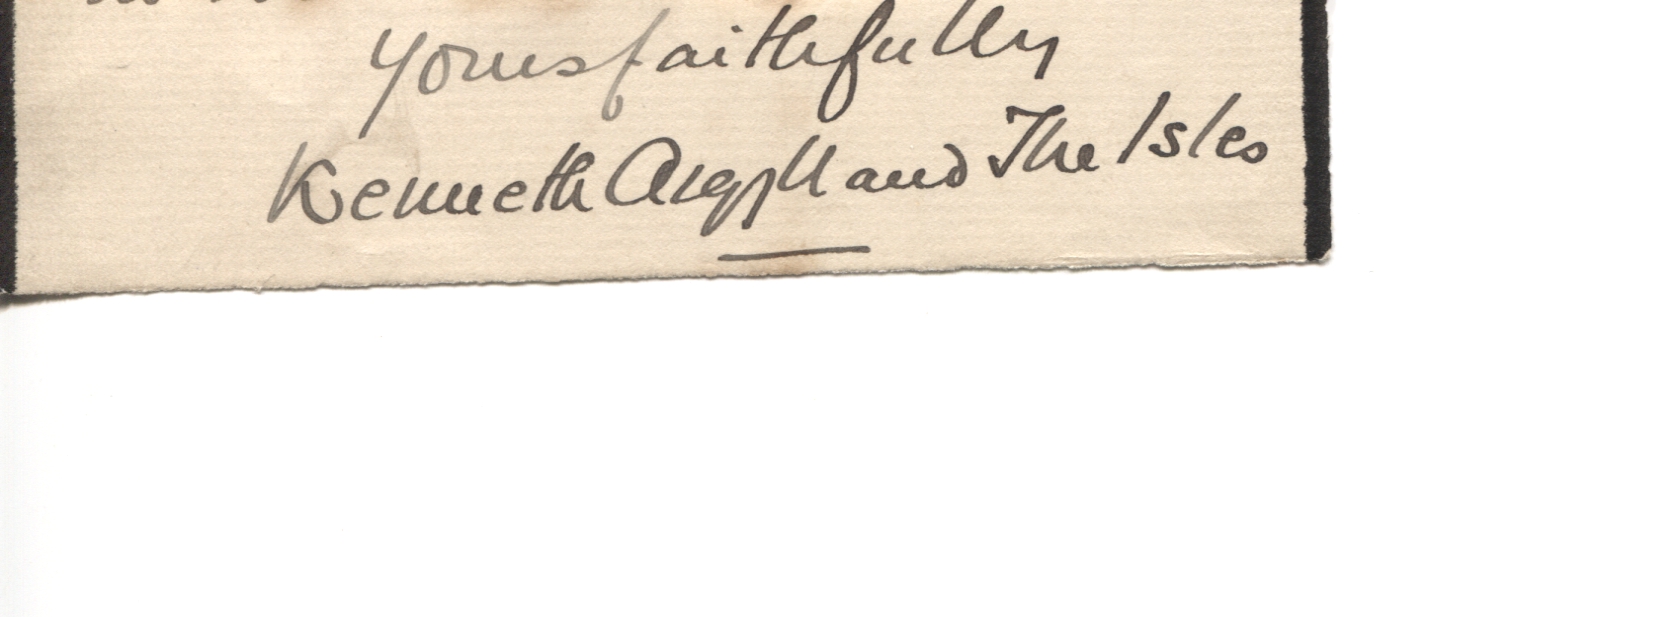 Yours faithfully
Kenneth Argyll and The Isles